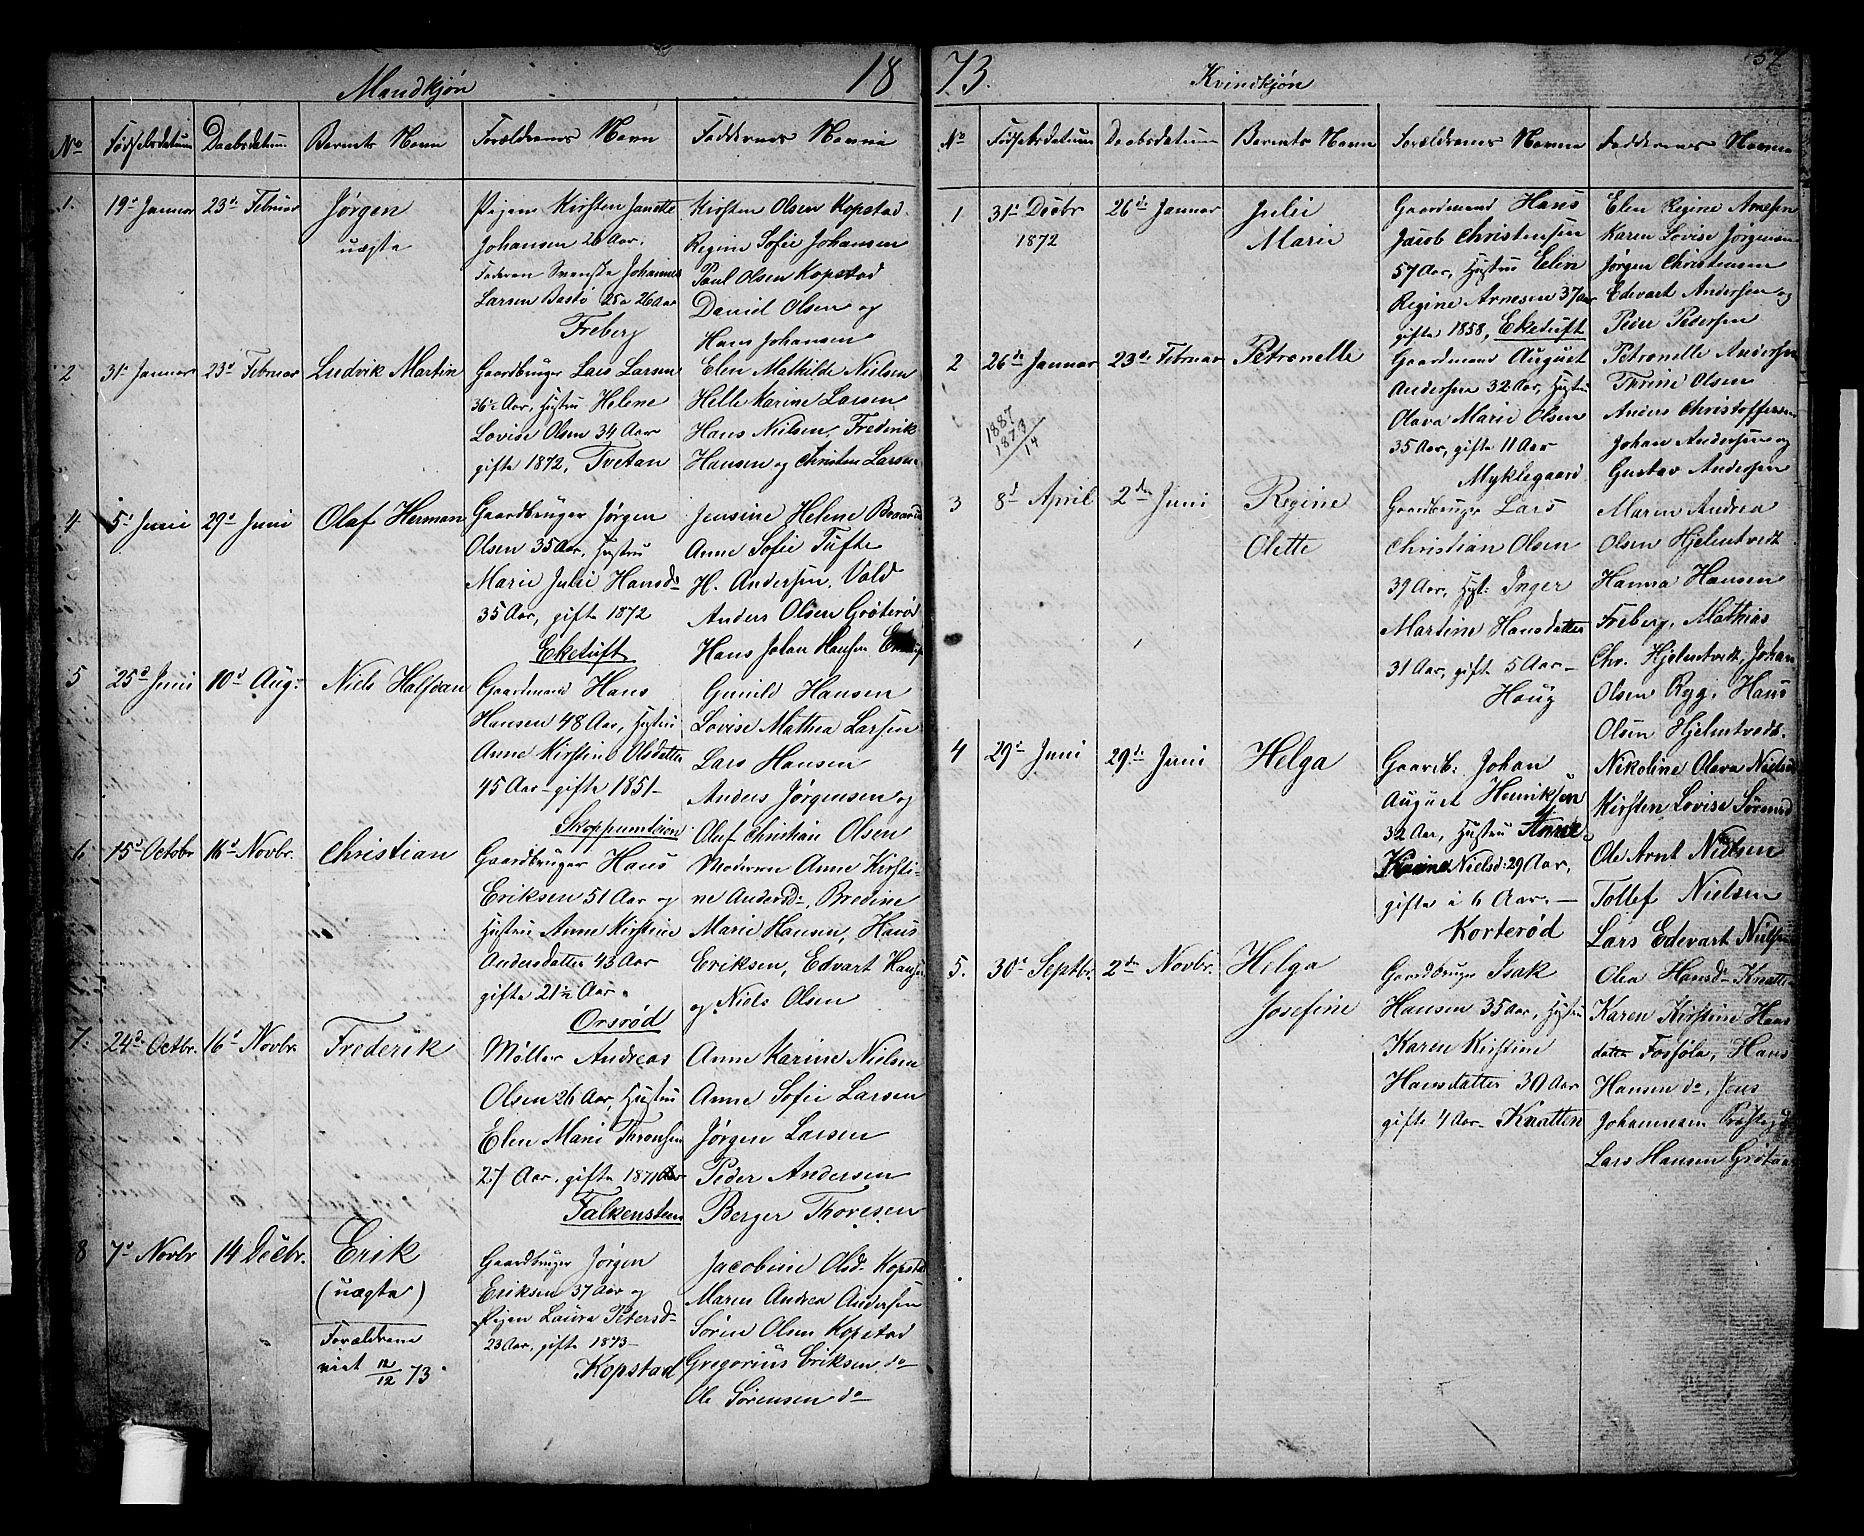 18
Mandkjøn
No
Fødselsdatum
Daabsdatum
Barnets Navn
Forældrenes Navn
Faddernes Navne
1.
19de Januar
23de Februar
Jørgen
uægte
Pigen Kirsten Janette
Johansen 26 Aar.
Faderen Svenske Johannes
Larsen Bastø 25 a 26 Aar
Freberg
Kirsten Olsen Kopstad.
Regine Sofie Johansen
Paul Olsen Kopstad
Daniel Olsen og
Hans Johansen
2
31. Januar
23d Februar
Ludvik Martin
Gaardbruger Lars Larsen
36 Aar, Hustru Helene
Lovise Olsen 34 Aar
gifte 1872, Tvetan
Elen Mathilde Nielsen
Helle Karine Larsen
Hans Nielsen, Frederik
Hansen og Christen Larsen
4
5. Juni
29d Juni
Olaf Herman
Gaardbruger Jørgen
Olsen 35 Aar, Hustru
Marie Julie Hansd:
35 Aar, gifte 1872
Eketuft
Jensine Helene
Anne Sofie Tufte
H. Andersen, Vold
Anders Olsen Grøterød
Hans Johan Hansen
5
25d Juni
10d Aug:
Niels Halfdan
Gaardmand Hans
Hansen 48 Aar, Hustru
Anne Kirstine Olsdatter
45 Aar - gifte 1851 -
Skoppumteien
Gunild Hansen
Lovise Mathea Larsen
Lars Hansen
Anders Jørgensen og
Oluf Christian Olsen
6
15d Octobr
16d Novbr.
Christian
Gaardbruger Hans
Eriksen 51 Aar og
Hustru Anne Kirstine
Andersdatter 43 Aar
gifte 21½ Aar.
Orsrød
Moderen Anne Kirsti-
ne Andersd:, Bredine
Marie Hansen, Hans
Eriksen, Edvart Hansen
og Niels Olsen
7.
24d Octbr.
16d Novbr.
Frederik
Møller Andreas
Olsen 26 Aar, Hustru
Elen Marie Thronsen
27 Aar. gifte 1871
Falkensten
Anne Karine Nielsen
Anne Sofie Larsen
Jørgen Larsen
Peder Andersen
Berger Thoresen
8
7d Novbr
14 Decbr.
Erik
(uægte)
Forældrene
viet 12/12 73.
Gaardbruger Jørgen
Eriksen 37 Aar og
Pigen Laura Petersd:
23 Aar, gifte 1873 -
Kopstad
Jacobine Olsd. Kopstad
Maren Andrea Andersen
Søren Olsen Kopstad
Gregorius Eriksen do
Ole Sørensen do
73.
Kvindkjøn
57
No
Fødselsdatum
Daabsdatum
Barnets Navn
Forældrenes Navne
Faddernes Navne
1
31. Decbr
1872
26de Januar
Julie
Marie
Gaardmand Hans
Jacob Christensen
57 Aar, Hustru Elin
Regine Arnesen 37 Aar
gifte 1858, Eketuft
Elen Regine Arnesen
Karen Lovise Jørgensen
Jørgen Christensen
Edevart Andersen og
Peder Pedersen
2
26de Januar
1887
1873
14
23d Februar
Petronelle
Gaardmand August
Andersen 32 Aar, Hustru
Olava Marie Olsen
35 Aar, gifte 11 Aar
Myklegaard
Petronelle Andersen
Thrine Olsen
Anders Christoffersen
Johan Andersen og
Gustav Andersen
3
8d April
2den Juni
Regine
Olette
Gaardbruger Lars
Christian Olsen
39 Aar, Hust: Inger
Martine Hansdatter
31 Aar, gifte 5 Aar -
Houg
Maren Andrea
Olsen Hjelmtvedt
Hanna Hansen
Freberg, Mathias
Chr. Hjelmtvedt, Johan
Olsen Ryg, Hans
Olsen Hjelmtvedt.
4
29d Juni
29d. Juni
Helga
Gaardb. Johan
August Henriksen
32 Aar, Hustru Anne
Karine Nielsd: 29 Aar,
gifte i 6 Aar. -
Korterød
Nikoline Olava Nielsd
Kirsten Lovise Sørensd
Ole Arnt Nielsen
Tollef Nielsen
Lars Edevart Nielsen
5.
30d Septbr.
2den Novbr.
Helga
Josefine
Gaardbruger Isak
Hansen 35 Aar, Hustru
Karen Kirstine
Hansdatter 30 Aar
gifte 4 Aar - Knatten
Olea Hansd Knatten
Karen Kirstine Hans
datter Fossøla, Hans
Hansen do, Jens
Johannesen
Lars Hansen